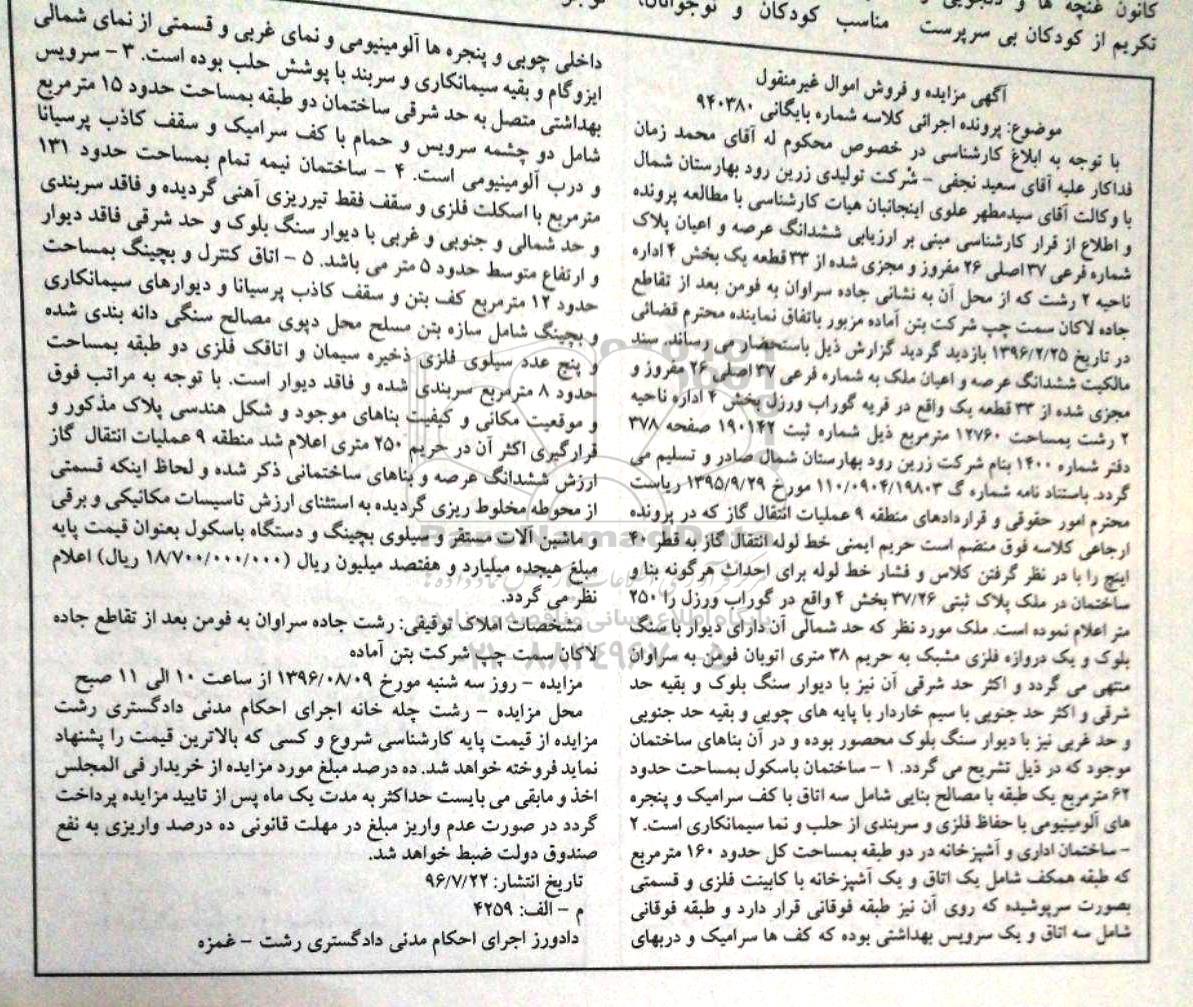 کانون غنچه ها و
تکریم از کودکان بی سرپرست مناسب کودکان و نوجوانان
آگهی مزایده و فروش اموال غیرمنقول
موضوع: پرونده اجرائی کلاسه شماره بایگانی ۹۴۰۳۸۰
با توجه به ابلاغ کارشناسی در خصوص محکوم له آقای محمد زمان
فداکار علیه آقای سعید نجفی - شرکت تولیدی زرین رود بهارستان شمال
با وکالت آقای سیدمطهر علوی اینجانبان هیات کارشناسی با مطالعه پرونده
و اطلاع از قرار کارشناسی مبنی بر ارزیابی ششدانگ عرصه و اعیان پلاک
شماره فرعی ۳۷ اصلی ۲۶ مفروز و مجزی شده از ۳۳ قطعه یک بخش ۴ اداره
ناحیه ۲ رشت که از محل آن به نشانی جاده سراوان به فومن بعد از تقاطع
جاده لاکان سمت چپ شرکت بتن آماده مزبور باتفاق نماینده محترم قضائی
در تاریخ ۱۳۹۶/۲/۲۵ بازدید گردید گزارش ذیل باستحضار می رساند. سند
مالکیت ششدانگ عرصه و اعیان ملک به شماره فرعی ۳۷ اصلی ۲۶ مفروز و
مجزی شده از ۳۳ قطعه یک واقع در قریه گوراب ورزل بخش ۴ اداره ناحیه
۲ رشت بمساحت ۱۲۷۶۰ مترمربع ذیل شماره ثبت ۱۹۰۱۴۲ صفحه ۳۷۸
دفتر شماره ۱۴۰۰ بنام شرکت زرین رود بهارستان شمال صادر و تسلیم می
گردد. باستناد نامه شماره گ ۱۱۰/۰۹۰۴/۱۹۸۰۳ مورخ ۱۳۹۵/۹/۲۹ ریاست
محترم امور حقوقی و قراردادهای منطقه ۹ عملیات انتقال گاز که در پرونده
ارجاعی کلاسه فوق منضم است حریم ایمنی خط لوله انتقال گاز به قطر ۴۰
اینچ را با در نظر گرفتن کلاس و فشار خط لوله برای احداث هرگونه بنا و
ساختمان در ملک پلاک ثبتی ۳۷/۲۶ بخش ۴ واقع در گوراب ورزل را ۲۵۰
متر اعلام نموده است. ملک مورد نظر که حد شمالی آن دارای دیوار با سنگ
بلوک و یک دروازه فلزی مشبک به حریم ۳۸ متری اتوبان فومن به سراوان
منتهی می گردد و اکثر حد شرقی آن نیز با دیوار سنگ بلوک و بقیه حد
شرقی و اکثر حد جنوبی با سیم خاردار با پایه های چوبی و بقیه حد جنوبی
و حد غربی نیز با دیوار سنگ بلوک محصور بوده و در آن بناهای ساختمان
موجود که در ذیل تشریح می گردد. ۱ - ساختمان باسکول بمساحت حدود
۶۲ مترمربع یک طبقه با مصالح بنایی شامل سه اتاق با کف سرامیک و پنجره
های آلومینیومی با حفاظ فلزی و سربندی از حلب و نما سیمانکاری است. ۲
- ساختمان اداری و آشپزخانه در دو طبقه بمساحت کل حدود ۱۶۰ مترمربع
که طبقه همکف شامل یک اتاق و یک آشپزخانه با کابینت فلزی و قسمتی
بصورت سرپوشیده که روی آن نیز طبقه فوقانی قرار دارد و طبقه فوقانی
شامل سه اتاق و یک سرویس بهداشتی بوده که کف ها سرامیک و دربهای
داخلی چوبی و پنجره ها آلومینیومی و نمای غربی و قسمتی از نمای شمالی
ایزوگام و بقیه سیمانکاری و سربند با پوشش حلب بوده است. ۳ - سرویس
بهداشتی متصل به حد شرقی ساختمان دو طبقه بمساحت حدود ۱۵ مترمربع
شامل دو چشمه سرویس و حمام با کف سرامیک و سقف کاذب پرسیانا
و درب آلومینیومی است. ۴ - ساختمان نیمه تمام بمساحت حدود ۱۳۱
مترمربع با اسکلت فلزی و سقف فقط تیرریزی آهنی گردیده و فاقد سربندی
و حد شمالی و جنوبی و غربی با دیوار سنگ بلوک و حد شرقی فاقد دیوار
و ارتفاع متوسط حدود ۵ متر می باشد. ۵ - اتاق کنترل و بچینگ بمساحت
حدود ۱۲ مترمربع کف بتن و سقف کاذب پرسیانا و دیوارهای سیمانکاری
و بچینگ شامل سازه بتن مسلح محل دپوی مصالح سنگی دانه بندی شده
و پنج عدد سیلوی فلزی ذخیره سیمان و اتاقک فلزی دو طبقه بمساحت
حدود ۸ مترمربع سربندی شده و فاقد دیوار است. با توجه به مراتب فوق
و موقعیت مکانی و کیفیت بناهای موجود و شکل هندسی پلاک مذکور و
قرارگیری اکثر آن در حریم ۲۵۰ متری اعلام شد منطقه ۹ عملیات انتقال گاز
ارزش ششدانگ عرصه و بناهای ساختمانی ذکر شده و لحاظ اینکه قسمتی
از محوطه مخلوط ریزی گردیده به استثنای ارزش تاسیسات مکانیکی و برقی
و ماشین آلات مستقر و سیلوی بچینگ و دستگاه باسکول بعنوان قیمت پایه
مبلغ هیجده میلیارد و هفتصد میلیون ریال (۱۸/۷۰۰/۰۰۰/۰۰۰ ریال) اعلام
نظر می گردد.
مشخصات املاک توقیفی: رشت جاده سراوان به فومن بعد از تقاطع جاده
لاکان سمت چپ شرکت بتن آماده
مزایده - روز سه شنبه مورخ ۱۳۹۶/۰۸/۰۹ از ساعت ۱۰ الی ۱۱ صبح
محل مزایده - رشت چله خانه اجرای احکام مدنی دادگستری رشت
مزایده از قیمت پایه کارشناسی شروع و کسی که بالاترین قیمت را پشنهاد
نماید فروخته خواهد شد. ده درصد مبلغ مورد مزایده از خریدار فی المجلس
اخذ و مابقی می بایست حداکثر به مدت یک ماه پس از تایید مزایده پرداخت
گردد در صورت عدم واریز مبلغ در مهلت قانونی ده درصد واریزی به نفع
صندوق دولت ضبط خواهد شد.
تاریخ انتشار: ۹۶/۷/۲۲
م - الف: ۴۲۵۹
دادورز اجرای احکام مدنی دادگستری رشت - غمزه